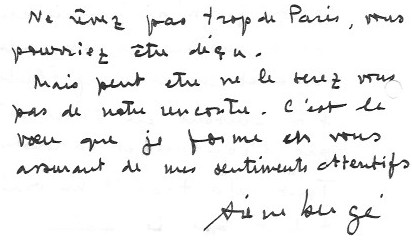 Ne rêvez pas trop de Paris, vous
pourriez être déçu.
Mais peut etre ne le serez vous
pas de notre rencontre. C'est le
vœu que je forme en vous
assurant de mes sentiments attentifs
Pierre Bergé